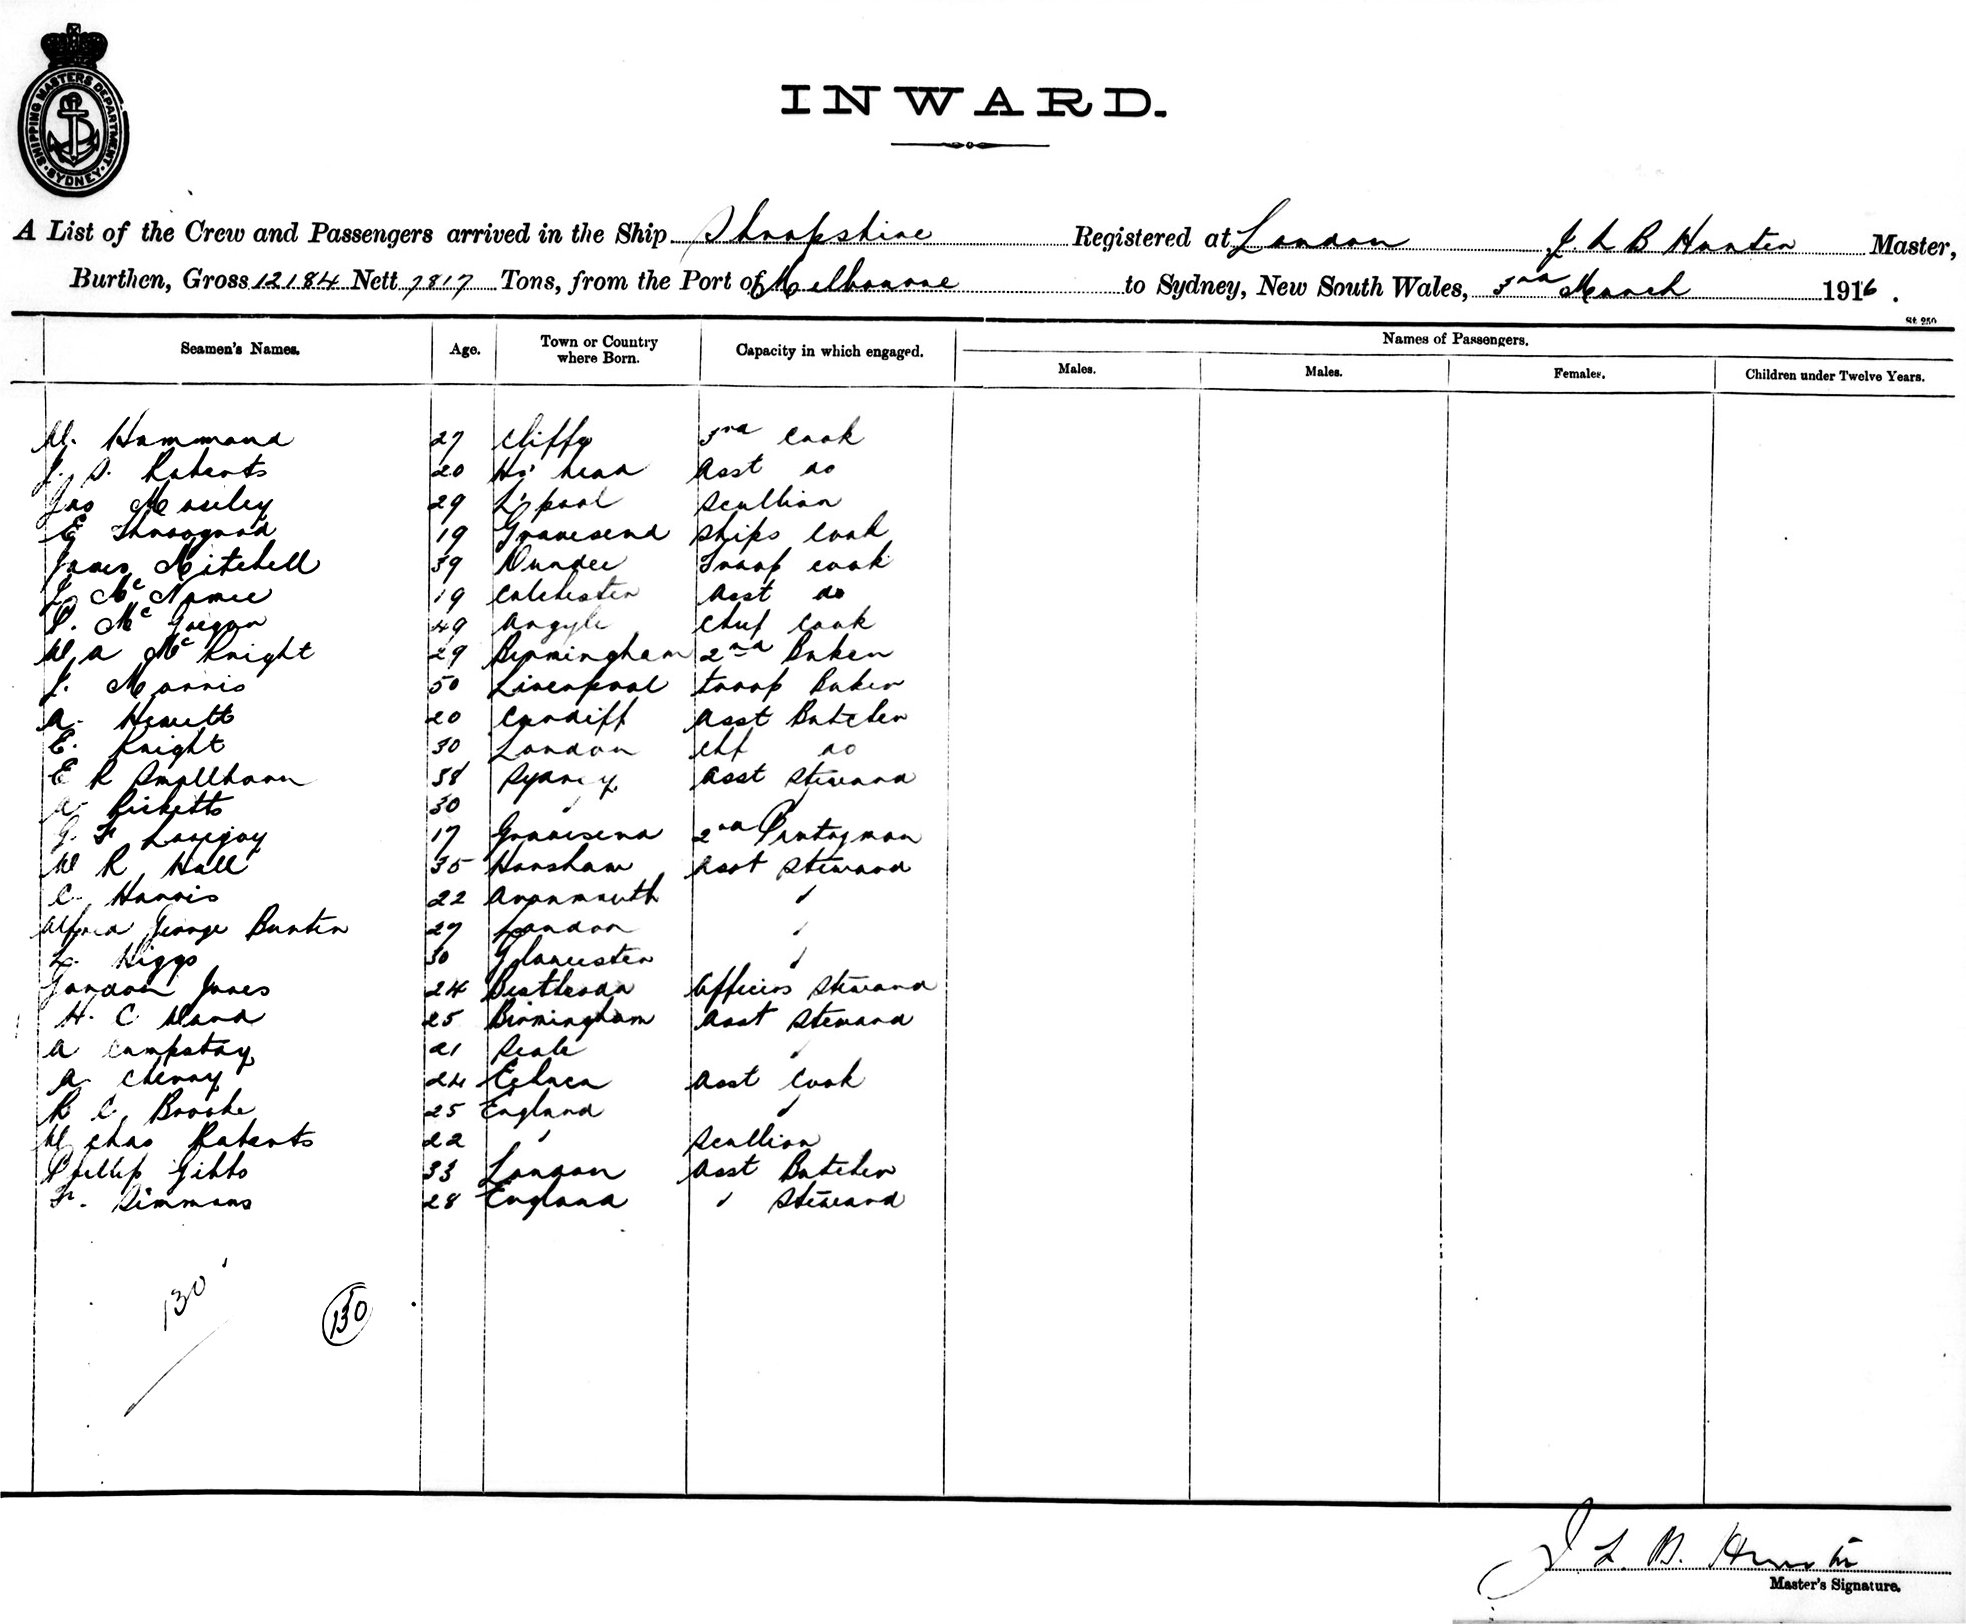 SHIPPING MASTERS DEPARTMENT
SYDNEY
INWARD.
A List of the Crew and Passengers arrived in the Ship Shropshire Registered at London J. L B Hunter Master,
Burthen, Gross 12184 Nett 7817 Tons, from the Port of Melbourne to Sydney, New South Wales, 3rd March 1916.
St 250
Seamen's Names. Age. Town or Country where Born. Capacity in which engaged. Names of Passengers.
Males. Males. Females. Children under Twelve Years.
W. Hammond 27 Cliffe 3rd Cook
J. S. Roberts 20 Ho' head Asst do
Jas Moseley 29 L'pool Scullion
E Thorogood 19 Gravesend Ships Cook
James Mitchell 39 Dundee Troop Cook
J McNamee 19 Colchester Asst do
P. McGregor 49 Argyle Chief Cook
W A McKnight 29 Birmingham 2nd Baker
J. Morris 50 Liverpool Troop Baker
A. Hewitt 20 Cardiff Asst Butcher
E. Knight 30 London Chf do
E R Smallhorn 38 Sydney Asst Steward
A Ricketts 30 "
G. F Lovejoy 17 Gravesend 2nd Pantryman
W R Hall 35 Horsham Asst Steward
C. Harris 22 Avonmouth "
Alfred George Bunten 27 London "
L. Higgs 30 Gloucester "
Gordon Jones 24 Besthesda Officers Steward
H. C Ward 25 Birmingham Asst Steward
A Campstay 21 Seale "
A Cheroy 24 Echuca Asst Cook
R C Brooke 25 England "
W Chas Roberts 22 " Scullion
Phillip Gibbs 33 London Asst Butcher
F. Simmons 28 England " Steward
130
130
J L B. Hunter
Master's Signature.